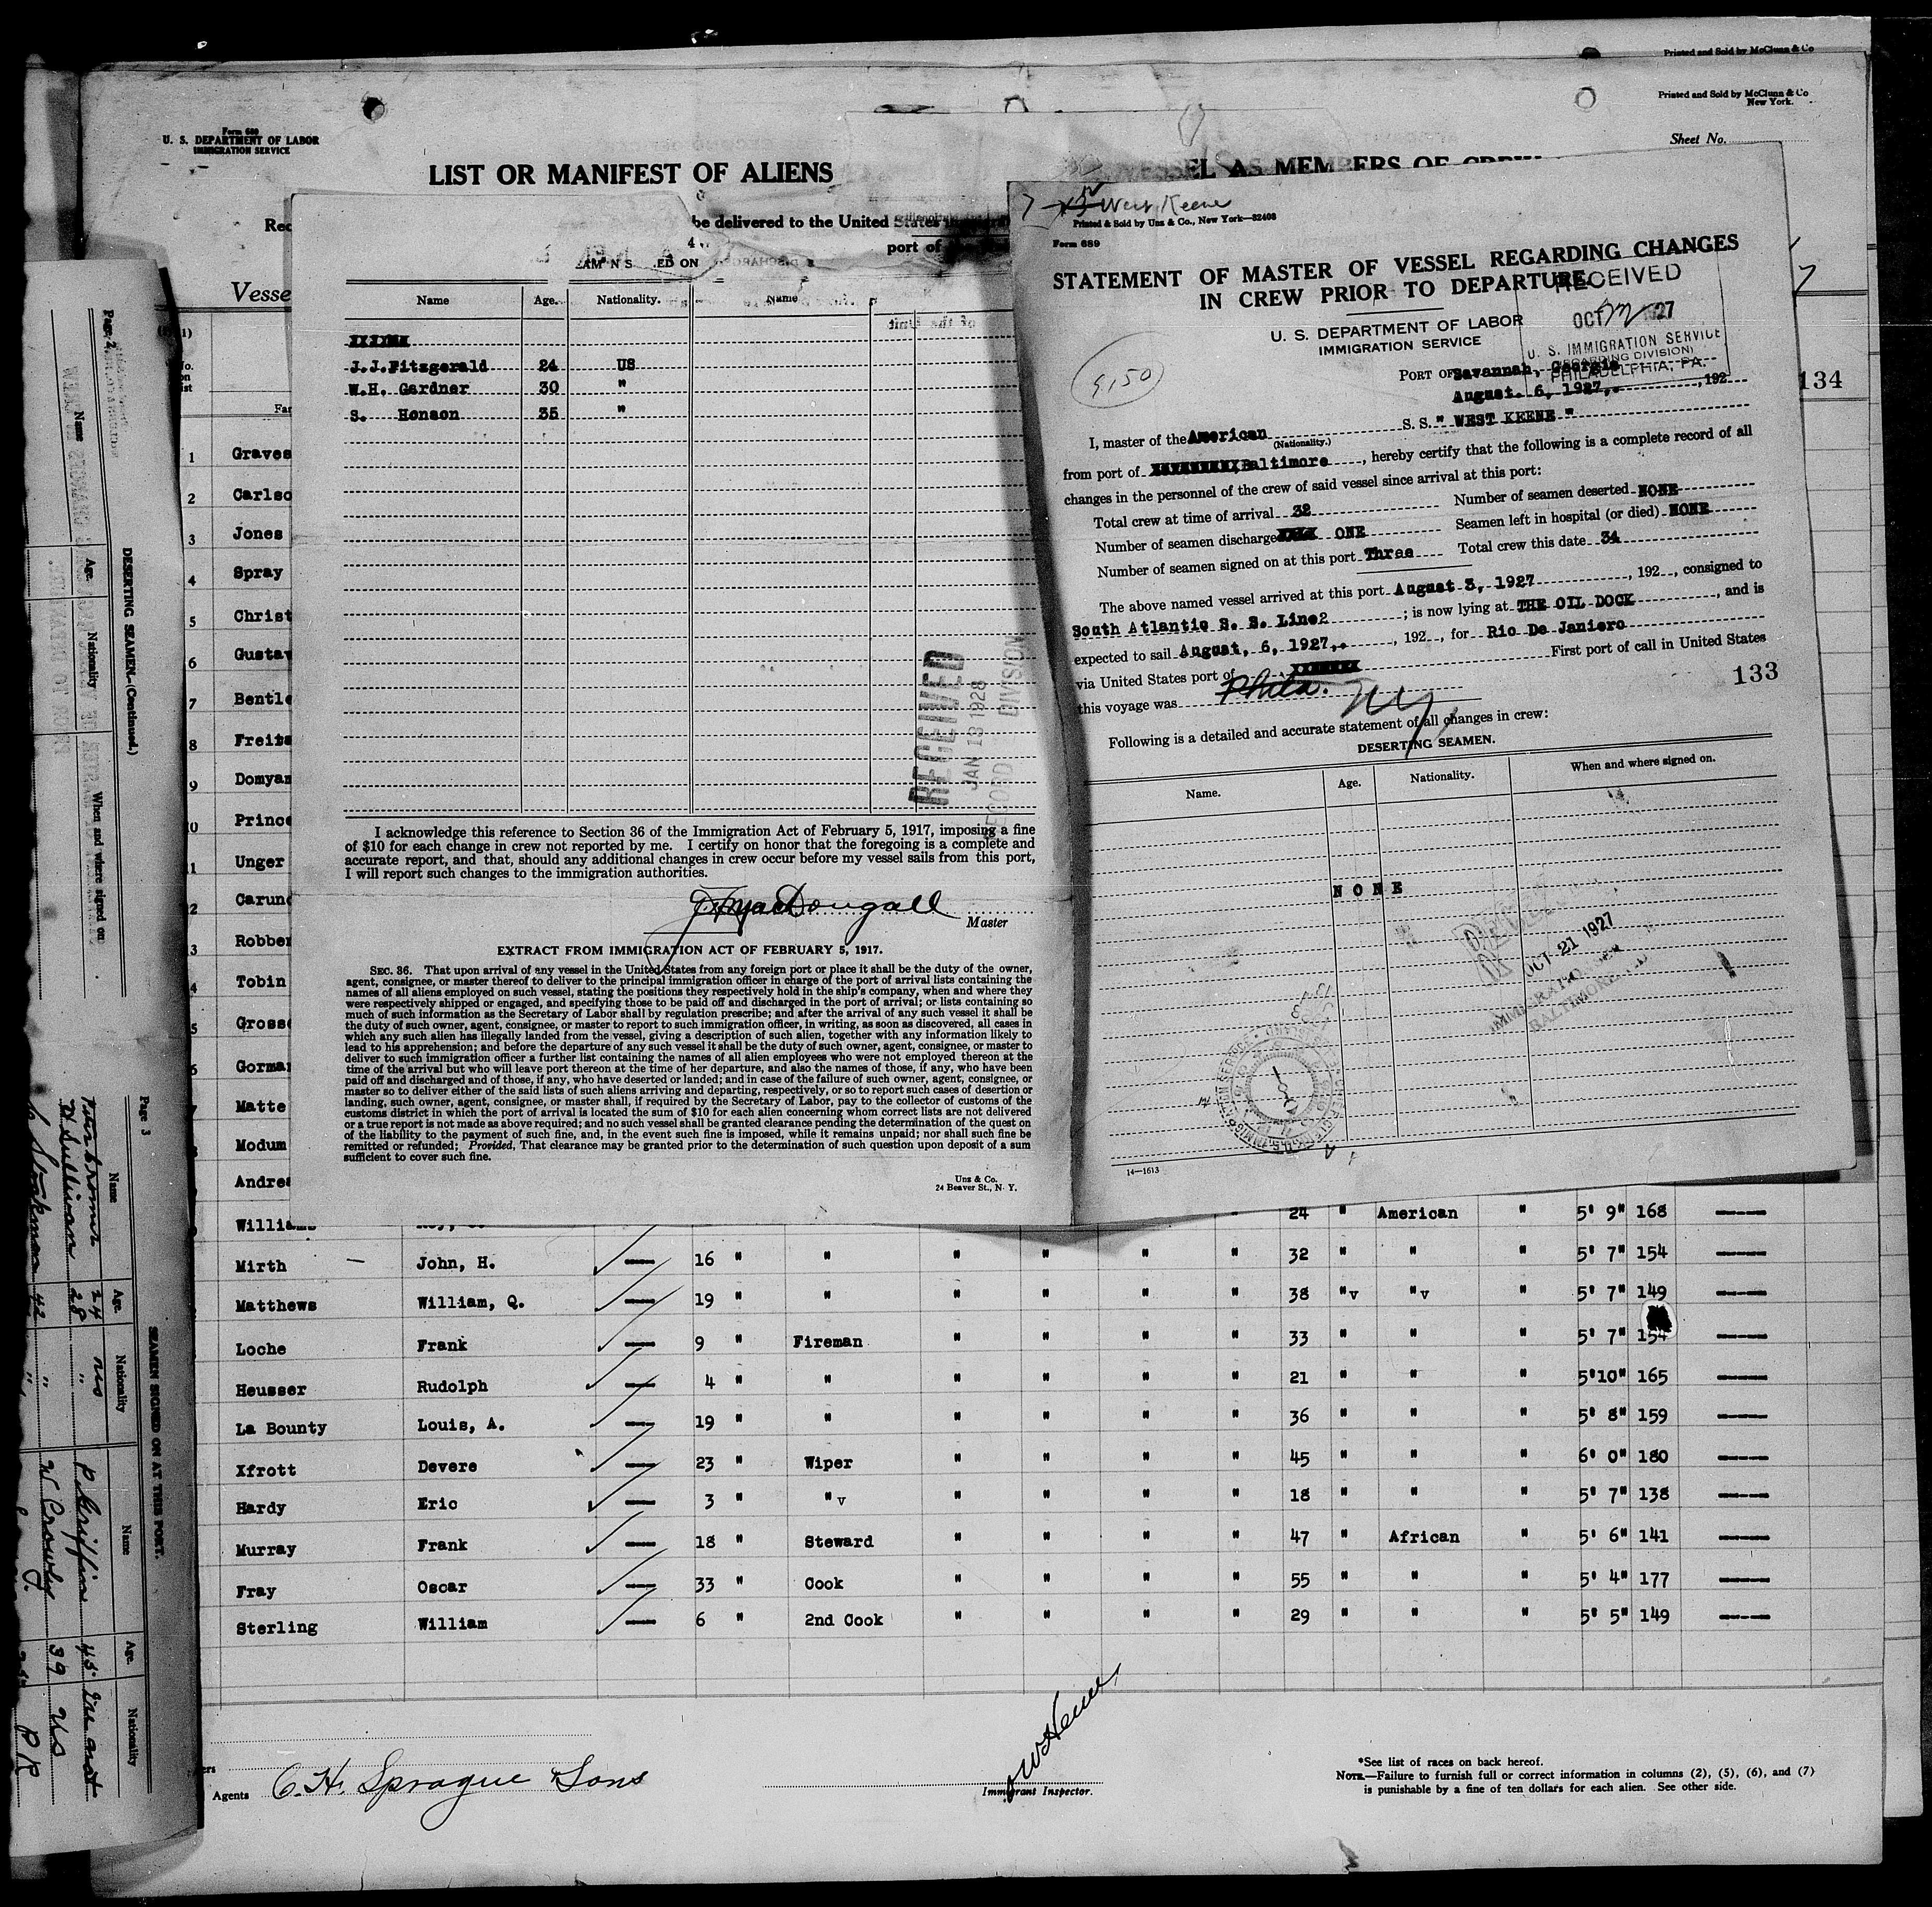 Printed and Sold by McClunn & Co
Printed and Sold by McClunn & Co
New York.
Form 689
U. S. DEPARTMENT OF LABOR
IMMIGRATION SERVICE
Sheet No.
LIST OR MANIFEST OF ALIENS
VESSEL AS MEMBERS OF CREW
be delivered to the United States
port of
Vesse
134
Name Age. Nationality. Name
XXXXXX
J.J.Fitzgerald 24 US
W.H. Gardner 30 "
S. Honson 35 "
RECEIVED
JAN 13 1928
RECORD DIVISION
I acknowledge this reference to Section 36 of the Immigration Act of February 5, 1917, imposing a fine
of $10 for each change in crew not reported by me. I certify on honor that the foregoing is a complete and
accurate report, and that, should any additional changes in crew occur before my vessel sails from this port,
I will report such changes to the immigration authorities.
MacDougall
Master
EXTRACT FROM IMMIGRATION ACT OF FEBRUARY 5, 1917.
SEC. 36. That upon arrival of any vessel in the United States from any foreign port or place it shall be the duty of the owner,
agent, consignee, or master thereof to deliver to the principal immigration officer in charge of the port of arrival lists containing the
names of all aliens employed on such vessel, stating the positions they respectively hold in the ship's company, when and where they
were respectively shipped or engaged, and specifying those to be paid off and discharged in the port of arrival; or lists containing so
much of such information as the Secretary of Labor shall by regulation prescribe; and after the arrival of any such vessel it shall be
the duty of such owner, agent, consignee, or master to report to such immigration officer, in writing, as soon as discovered, all cases in
which any such alien has illegally landed from the vessel, giving a description of such alien, together with any information likely to
lead to his apprehension; and before the departure of any such vessel it shall be the duty of such owner, agent, consignee, or master to
deliver to such immigration officer a further list containing the names of all alien employees who were not employed thereon at the
time of the arrival but who will leave port thereon at the time of her departure, and also the names of those, if any, who have been
paid off and discharged and of those, if any, who have deserted or landed; and in case of the failure of such owner, agent, consignee, or
master so to deliver either of the said lists of such aliens arriving and departing, respectively, or so to report such cases of desertion or
landing, such owner, agent, consignee, or master shall, if required by the Secretary of Labor, pay to the collector of customs of the
customs district in which the port of arrival is located the sum of $10 for each alien concerning whom correct lists are not delivered
or a true report is not made as above required; and no such vessel shall be granted clearance pending the determination of the quest on
of the liability to the payment of such fine, and, in the event such fine is imposed, while it remains unpaid; nor shall such fine be
remitted or refunded; Provided, That clearance may be granted prior to the determination of such question upon deposit of a sum
sufficient to cover such fine.
Unz & Co.
24 Beaver St., N. Y.
West Keene
Printed & Sold by Unz & Co., New York—32408
Form 689
STATEMENT OF MASTER OF VESSEL REGARDING CHANGES
IN CREW PRIOR TO DEPARTURE.
RECEIVED
OCT 1927
U. S. IMMIGRATION SERVICE
(BOARDING DIVISION)
PHILADELPHIA, PA.
U. S. DEPARTMENT OF LABOR
IMMIGRATION SERVICE
9,150
PORT OF Savannah, Georgia
August. 6, 1927,. , 192
I, master of the American S. S. " WEST KEENE "
(Nationality.)
from port of XXXXXXXXX Baltimore , hereby certify that the following is a complete record of all
changes in the personnel of the crew of said vessel since arrival at this port:
Total crew at time of arrival 32 Number of seamen deserted NONE
Number of seamen discharge XXXX ONE Seamen left in hospital (or died) NONE
Number of seamen signed on at this port Three Total crew this date 34
The above named vessel arrived at this port August 3, 1927 , 192 , consigned to
South Atlantic S. S. Line2 ; is now lying at THE OIL DOCK , and is
expected to sail August, 6, 1927,. , 192 , for Rio De Janiero
via United States port of XXXXXXX First port of call in United States
this voyage was Phila. NY
133
Following is a detailed and accurate statement of all changes in crew:
DESERTING SEAMEN.
Name. Age. Nationality. When and where signed on.
NONE
OCT 21 1927
BALTIMORE, MD
14—1613
Page 2
DESERTING SEAMEN.-(Continued.)
Name Age. Nationality When and where signed on
Page 3
SEAMEN SIGNED ON AT THIS PORT.
Name Age. Nationality Name Age. Nationality
24 US P Griffin 45
D Sullivan 28 " W Crowly 39 US
42 " PR
1 Graves
2 Carlso
3 Jones
4 Spray
5 Christ
6 Gustav
7 Bentle
8 Freita
9 Domyan
10 Prince
11 Unger
12 Carund
13 Robber
14 Tobin
15 Grosso
16 Gorman
Matte
Modum
Andrea
Williams 24 " American " 5' 9" 168
Mirth John, H. 16 " " " " " " 32 " " " 5' 7" 154
Matthews William, Q. 19 " " " " " " 38 "v "v " 5' 7" 149
Loche Frank 9 " Fireman " " " " 33 " " " 5' 7" 154
Heusser Rudolph 4 " " " " " " 21 " " " 5'10" 165
La Bounty Louis, A. 19 " " " " " " 36 " " " 5' 8" 159
Xfrott Devere 23 " Wiper " " " " 45 " " " 6' 0" 180
Hardy Eric 3 " "v " " " " 18 " " " 5' 7" 138
Murray Frank 18 " Steward " " " " 47 " African " 5' 6" 141
Fray Oscar 33 " Cook " " " " 55 " " " 5' 4" 177
Sterling William 6 " 2nd Cook " " " " 29 " " " 5' 5" 149
Agents C. H. Sprague & Sons
Immigrant Inspector.
*See list of races on back hereof.
NOTE.—Failure to furnish full or correct information in columns (2), (5), (6), and (7)
is punishable by a fine of ten dollars for each alien. See other side.